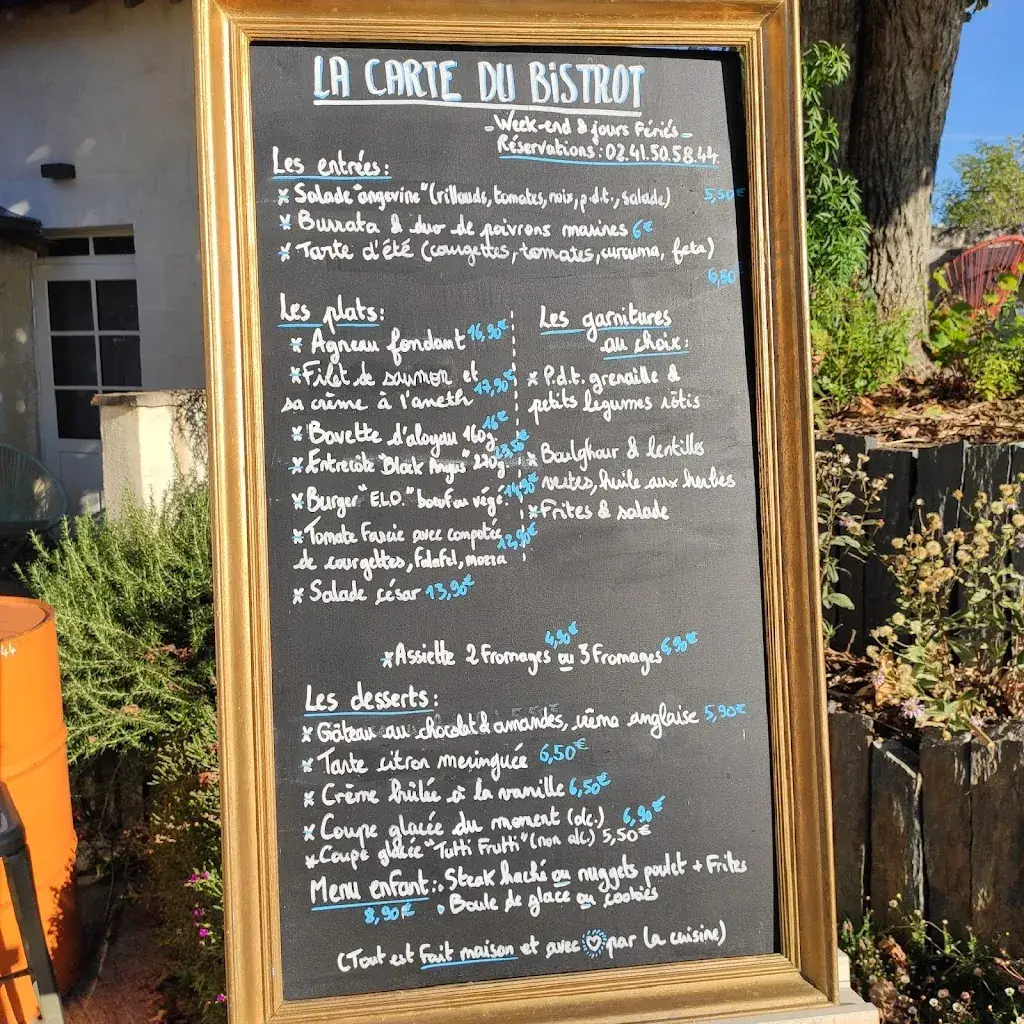 LA CARTE DU BISTROT
- Week-end & jours Fériés -
Réservations : 02.41.50.58.44.
Les entrées :
x Salade "angevine" (rillauds, tomates, noix, p.d.t., salade) 5,50€
x Burrata & duo de poivrons marinés 6€
x Tarte d'été (courgettes, tomates, curcuma, feta)
6,50
Les plats :
x Agneau fondant 16,90€
x Filet de saumon et
sa crème à l'aneth 17,90€
x Bavette d'aloyau 160g 16€
x Entrecôte "Black Angus" 220g 23,50€
x Burger "E.L.O." boeuf ou végé 14,90€
x Tomate Farcie avec compotée
de courgettes, falafel, mozza 12,90€
x Salade césar 13,90€
Les garnitures
au choix :
x P.d.t. grenaille &
petits légumes rôtis
x Boulghour & lentilles
vertes, huile aux herbes
x Frites & salade
x Assiette 2 Fromages 4,90€ ou 3 Fromages 6,90€
Les desserts :
x Gâteau au chocolat & amandes, crème anglaise 5,90€
x Tarte citron meringuée 6,50€
x Crème brûlée à la vanille 6,50€
x Coupe glacée du moment (alc.) 6,90€
x Coupe glacée "Tutti Frutti" (non alc) 5,50€
Menu enfant : • Steak haché ou nuggets poulet + Frites
8,90€ • Boule de glace ou cookies
(Tout est Fait maison et avec ♡ par la cuisine)
44